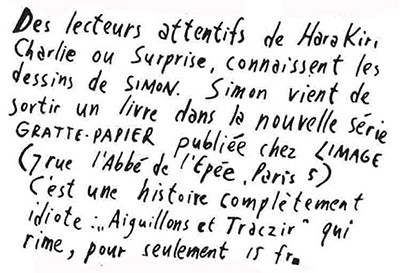 Des lecteurs attentifs de Hara Kiri
Charlie ou Surprise, connaissent les
dessins de SIMON. Simon vient de
sortir un livre dans la nouvelle série
GRATTE-PAPIER publiée chez LIMAGE
(7 rue l'Abbé de l'Epée, Paris 5)
C'est une histoire complètement
idiote: „Aiguillons et Traczir" qui
rime, pour seulement 15 fr.